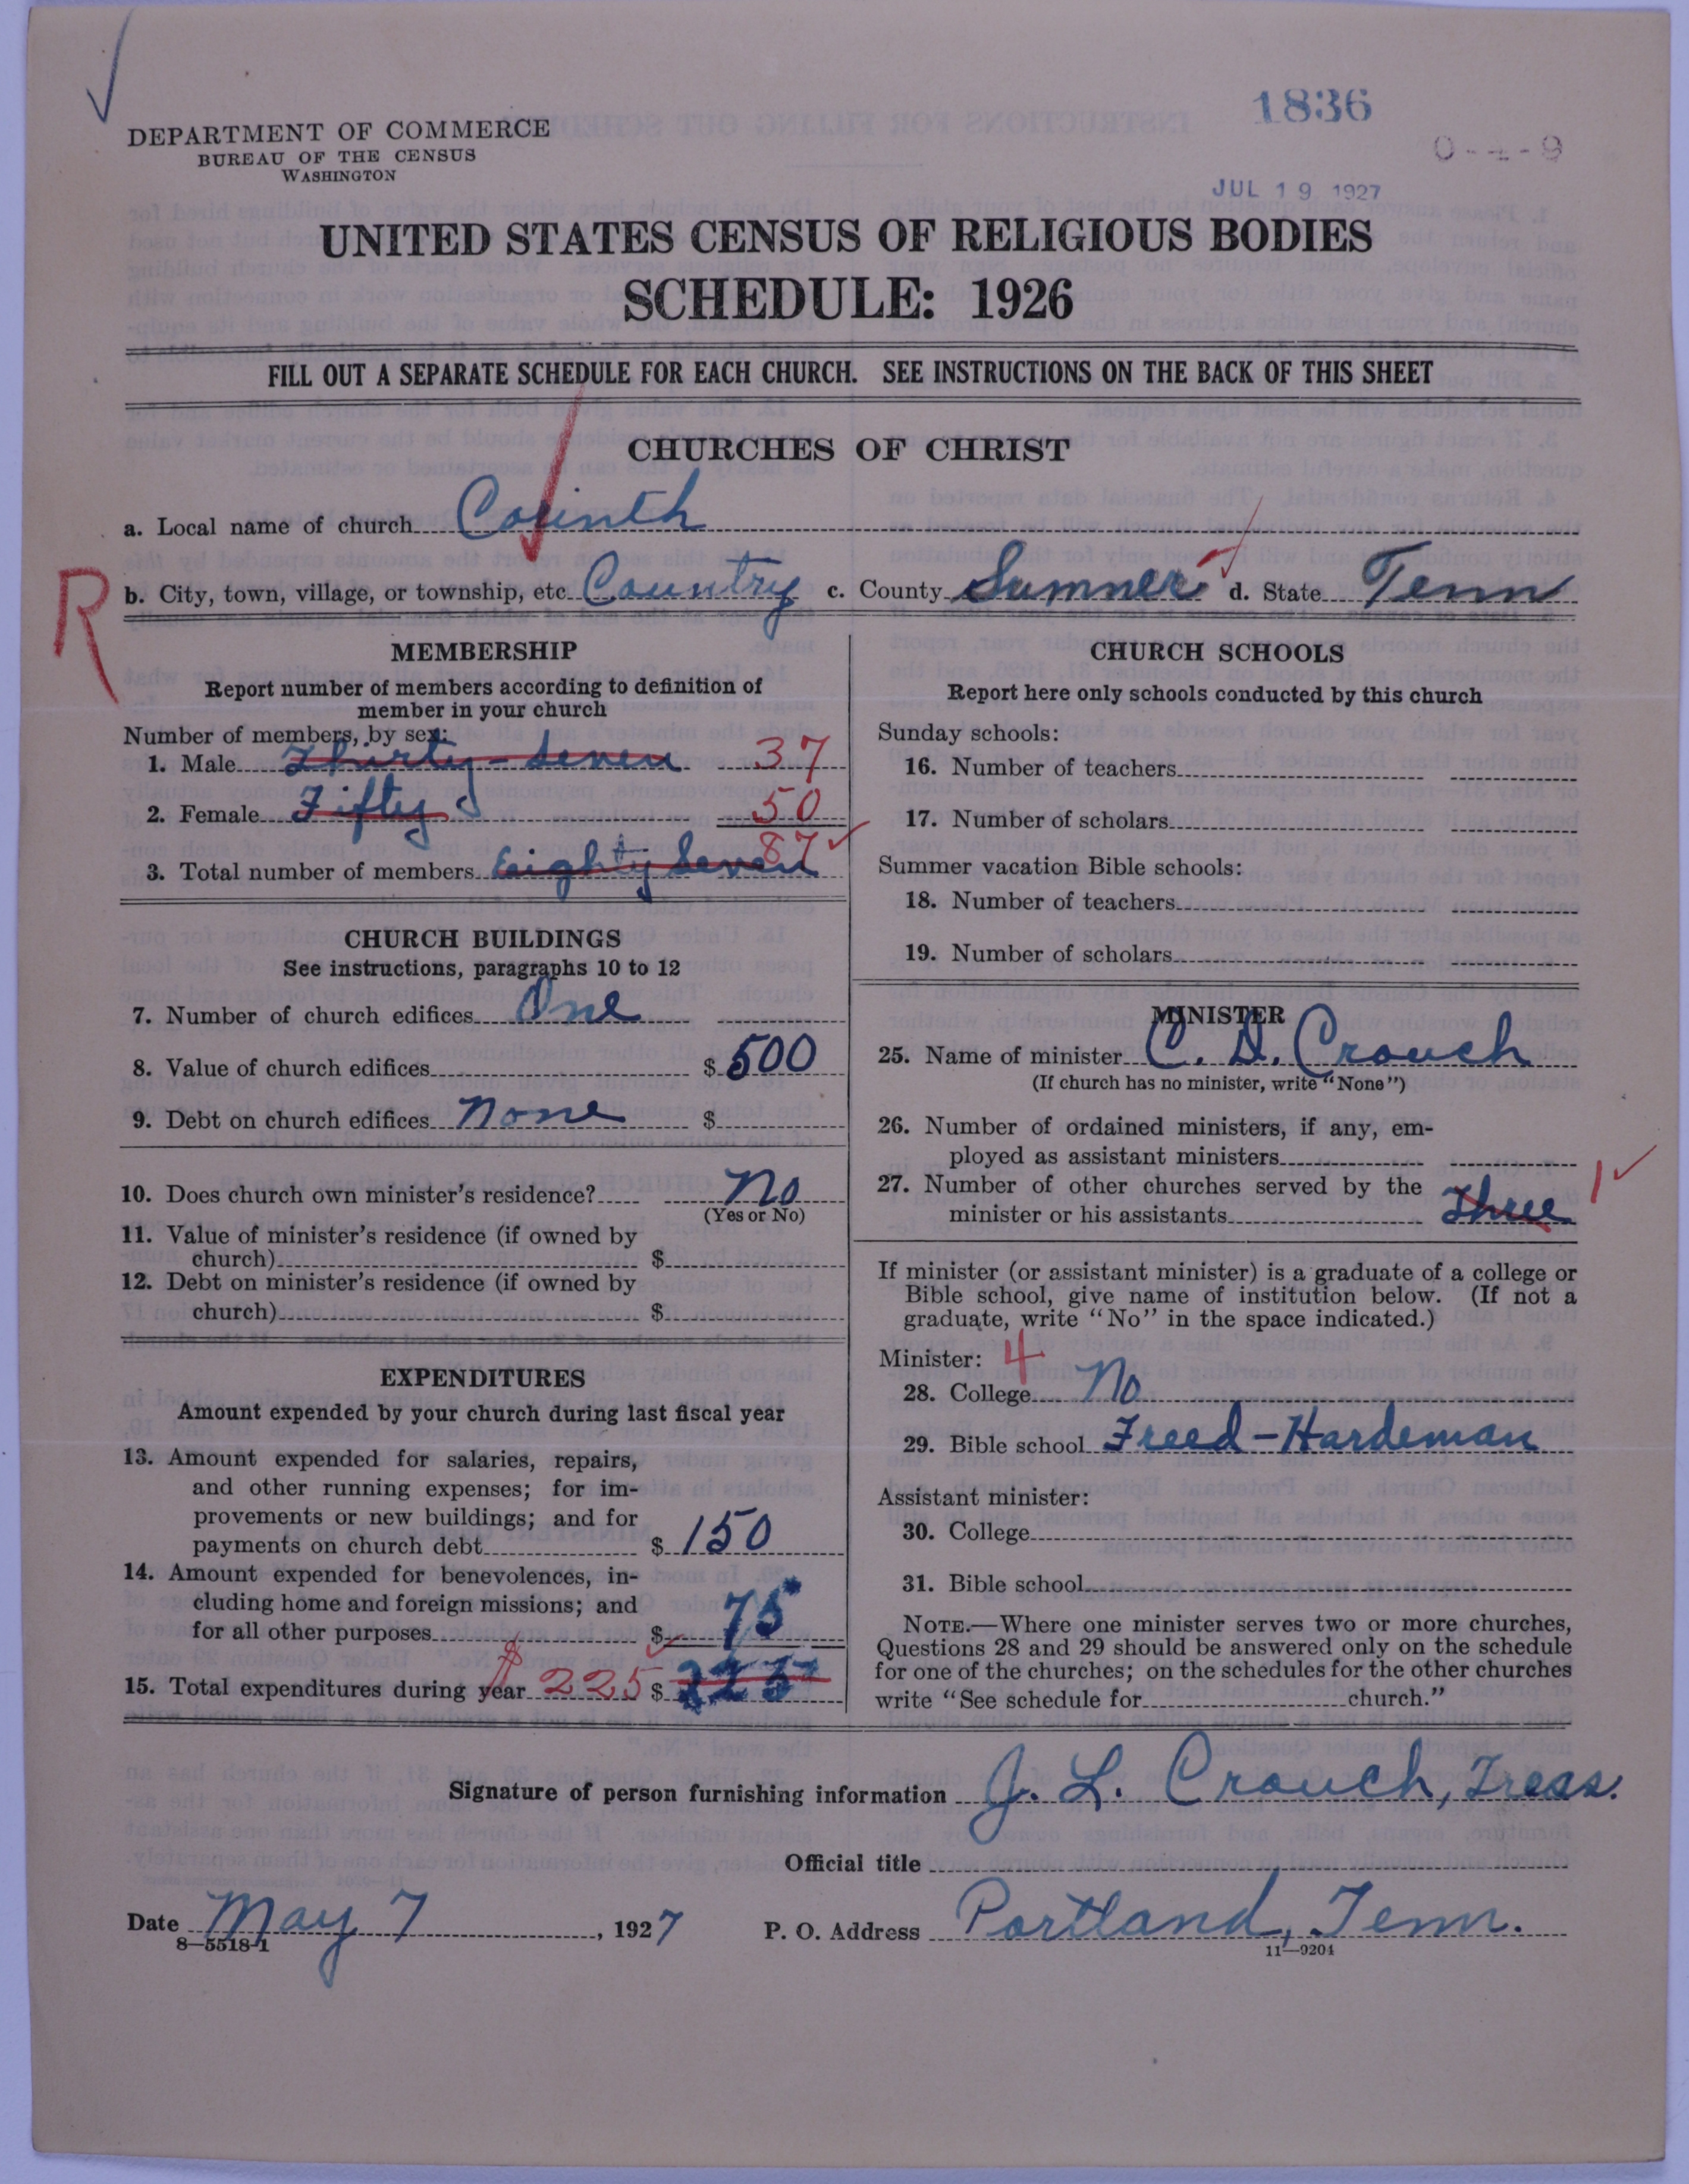 1836
0-4-9
JUL 19 1927
DEPARTMENT OF COMMERCE
BUREAU OF THE CENSUS
WASHINGTON
UNITED STATES CENSUS OF RELIGIOUS BODIES
SCHEDULE: 1926
FILL OUT A SEPARATE SCHEDULE FOR EACH CHURCH. SEE INSTRUCTIONS ON THE BACK OF THIS SHEET
CHURCHES OF CHRIST
a. Local name of church Corinth
R
b. City, town, village, or township, etc. Country c. County Sumner d. State Tenn
MEMBERSHIP
Report number of members according to definition of
member in your church
Number of members, by sex:
1. Male Thirty-Seven 37
2. Female Fifty 50
3. Total number of members Eighty Seven 87
CHURCH BUILDINGS
See instructions, paragraphs 10 to 12
7. Number of church edifices One
8. Value of church edifices $ 500
9. Debt on church edifices None $
10. Does church own minister's residence? No
(Yes or No)
11. Value of minister's residence (if owned by
church) $
12. Debt on minister's residence (if owned by
church) $
EXPENDITURES
Amount expended by your church during last fiscal year
13. Amount expended for salaries, repairs,
and other running expenses; for im-
provements or new buildings; and for
payments on church debt $ 150
14. Amount expended for benevolences, in-
cluding home and foreign missions; and
for all other purposes $ 75
15. Total expenditures during year $225 $
CHURCH SCHOOLS
Report here only schools conducted by this church
Sunday schools:
16. Number of teachers
17. Number of scholars
Summer vacation Bible schools:
18. Number of teachers
19. Number of scholars
MINISTER
25. Name of minister C. D. Crouch
(If church has no minister, write "None")
26. Number of ordained ministers, if any, em-
ployed as assistant ministers
27. Number of other churches served by the
minister or his assistants Three 1
If minister (or assistant minister) is a graduate of a college or
Bible school, give name of institution below. (If not a
graduate, write "No" in the space indicated.)
Minister: 4
28. College No
29. Bible school Freed-Hardeman
Assistant minister:
30. College
31. Bible school
NOTE.—Where one minister serves two or more churches,
Questions 28 and 29 should be answered only on the schedule
for one of the churches; on the schedules for the other churches
write "See schedule for church."
Signature of person furnishing information J. L. Crouch, Treas.
Official title
Date May 7, 1927 P. O. Address Portland, Tenn.
8—5518-1
11—9204